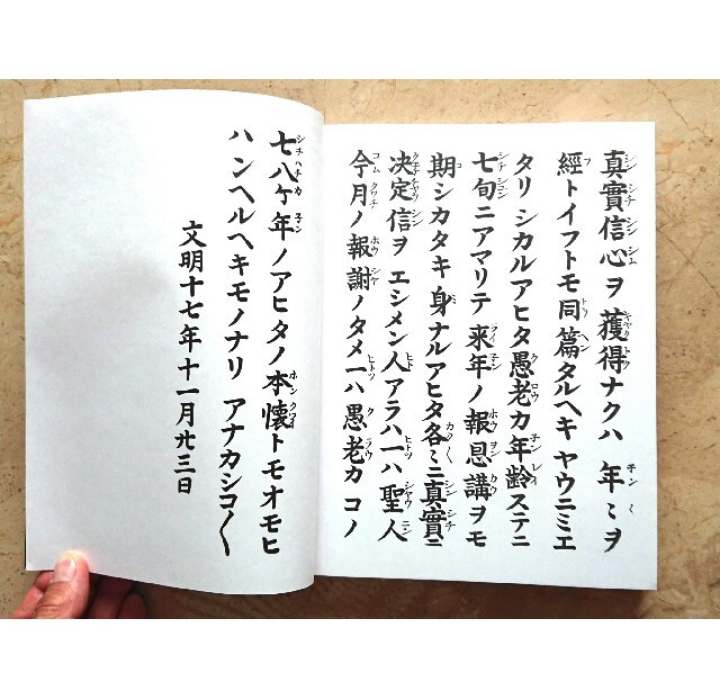 真實信心ヲ獲得ナクハ年〻ヲ
經トイフトモ同篇タルヘキヤウニミエ
タリシカルアヒタ愚老カ年齡ステニ
七旬ニアマリテ来年ノ報恩講ヲモ
期シカタキ身ナルアヒタ各〻ニ真實ニ
决定信ヲエシメン人アラハ一ハ聖人
今月ノ報謝ノタメ一ハ愚老カコノ
七八ケ年ノアヒタノ本懐トモオモヒ
ハンヘルヘキモノナリアナカシコ〱
文明十七年十一月廿三日